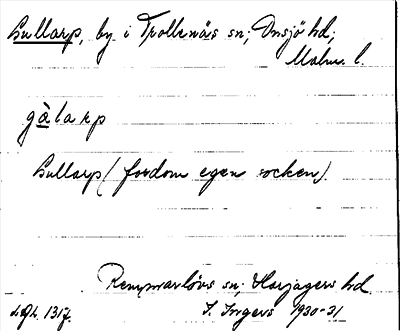 Gullarp, by i Trollenäs sn; Onsjö hd;
Malm. l.
gàlarp
Gullarp (fordom egen socken).
Remmarlövs sn; Harjagers hd
L.g.h. 1317. I. Ingers 1930-31